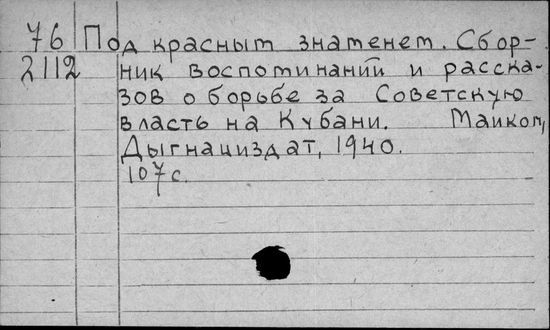 76 Под красным знаменем. Сбор-
2112 ник воспоминаний и расска-
зов о борьбе за Советскую
власть на Кубани. Майкоп,
Адыгнациздат, 1940.
107 с.